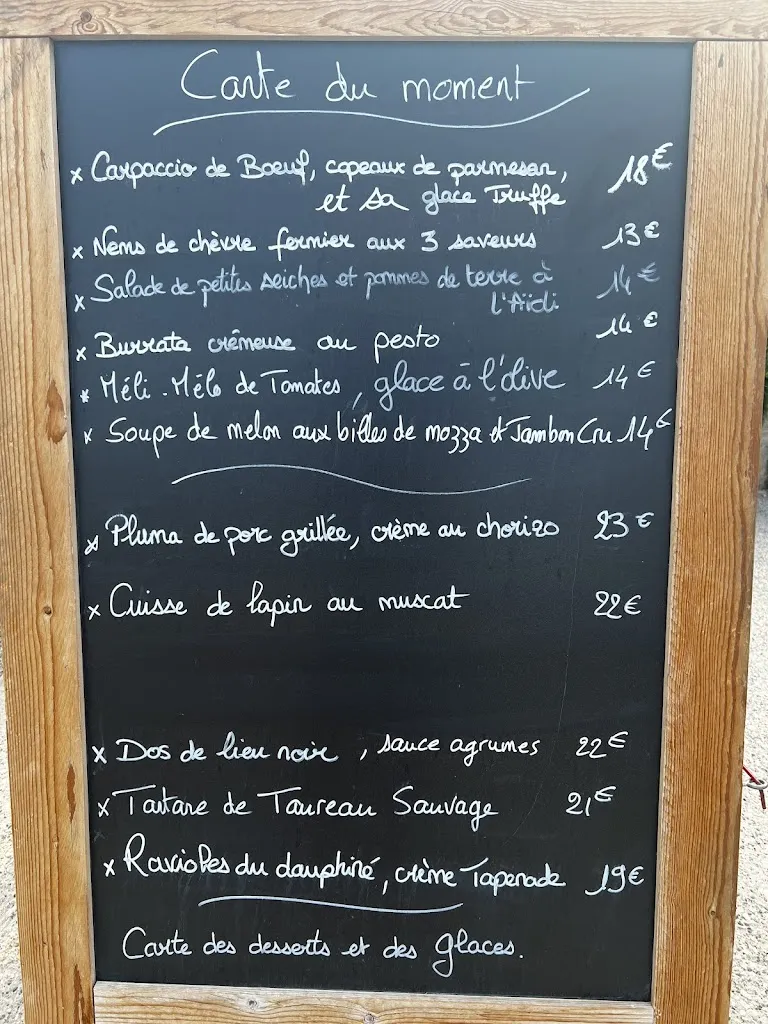 Carte du moment
x Carpaccio de Boeuf, copeaux de parmesan, 18€
et sa glace Truffe
x Nems de chèvre fermier aux 3 saveurs 13€
x Salade de petites seiches et pommes de terre à 14€
l'Aïoli
x Burrata crémeuse au pesto 14€
x Méli-Mélo de Tomates, glace à l'olive 14€
x Soupe de melon aux billes de mozza et Jambon Cru 14€
x Pluma de porc grillée, crème au chorizo 23€
x Cuisse de lapin au muscat 22€
x Dos de lieu noir, sauce agrumes 22€
x Tartare de Taureau Sauvage 21€
x Ravioles du dauphiné, crème Tapenade 19€
Carte des desserts et des glaces.